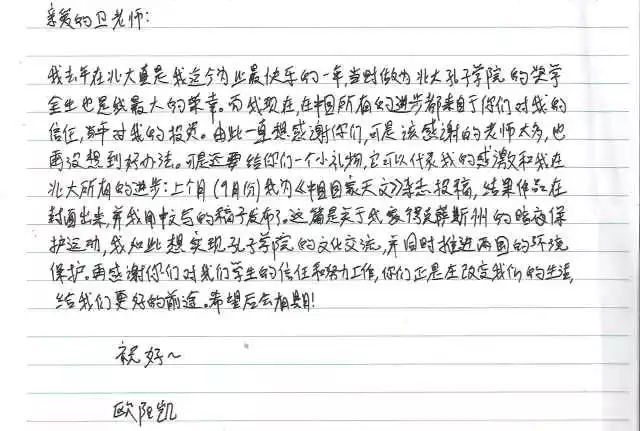 亲爱的卫老师:
我去年在北大真是我迄今为止最快乐的一年,当时做为北大孔子学院的奖学
金生也是我最大的荣幸。而我现在在中国所有的进步都来自于你们对我的
信任,对我的投资。由此一直想感谢你们,可是该感谢的老师太多,也
再没想到好办法。可是还要给你们一个小礼物,它可以代表我的感激和我在
北大所有的进步:上个月(9月份)我为《中国国家天文》杂志投稿,结果作品在
封面出来,并我用中文写的稿子发布了。这篇是关于我家得克萨斯州的暗夜保
护运动,我如此想实现孔子学院的文化交流,并同时推进两国的环境
保护。再感谢你们对我们学生的信任和努力工作,你们正是在改变我们的生活,
给我们更好的前途。希望后会有期!
祝好~
欧阳凯